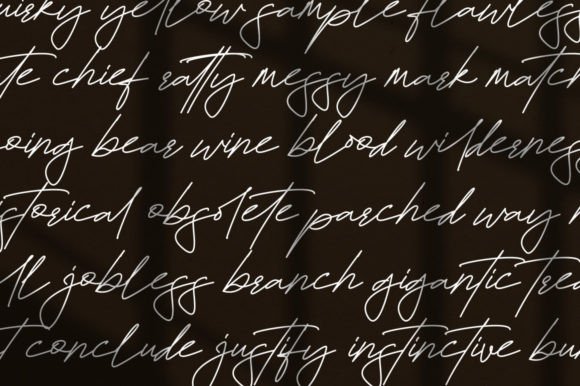 yellow sample flawless
chief ratty messy mark match
bear wine blood wilderness
historical obsolete parched way
jobless branch gigantic
conclude justify instinctive